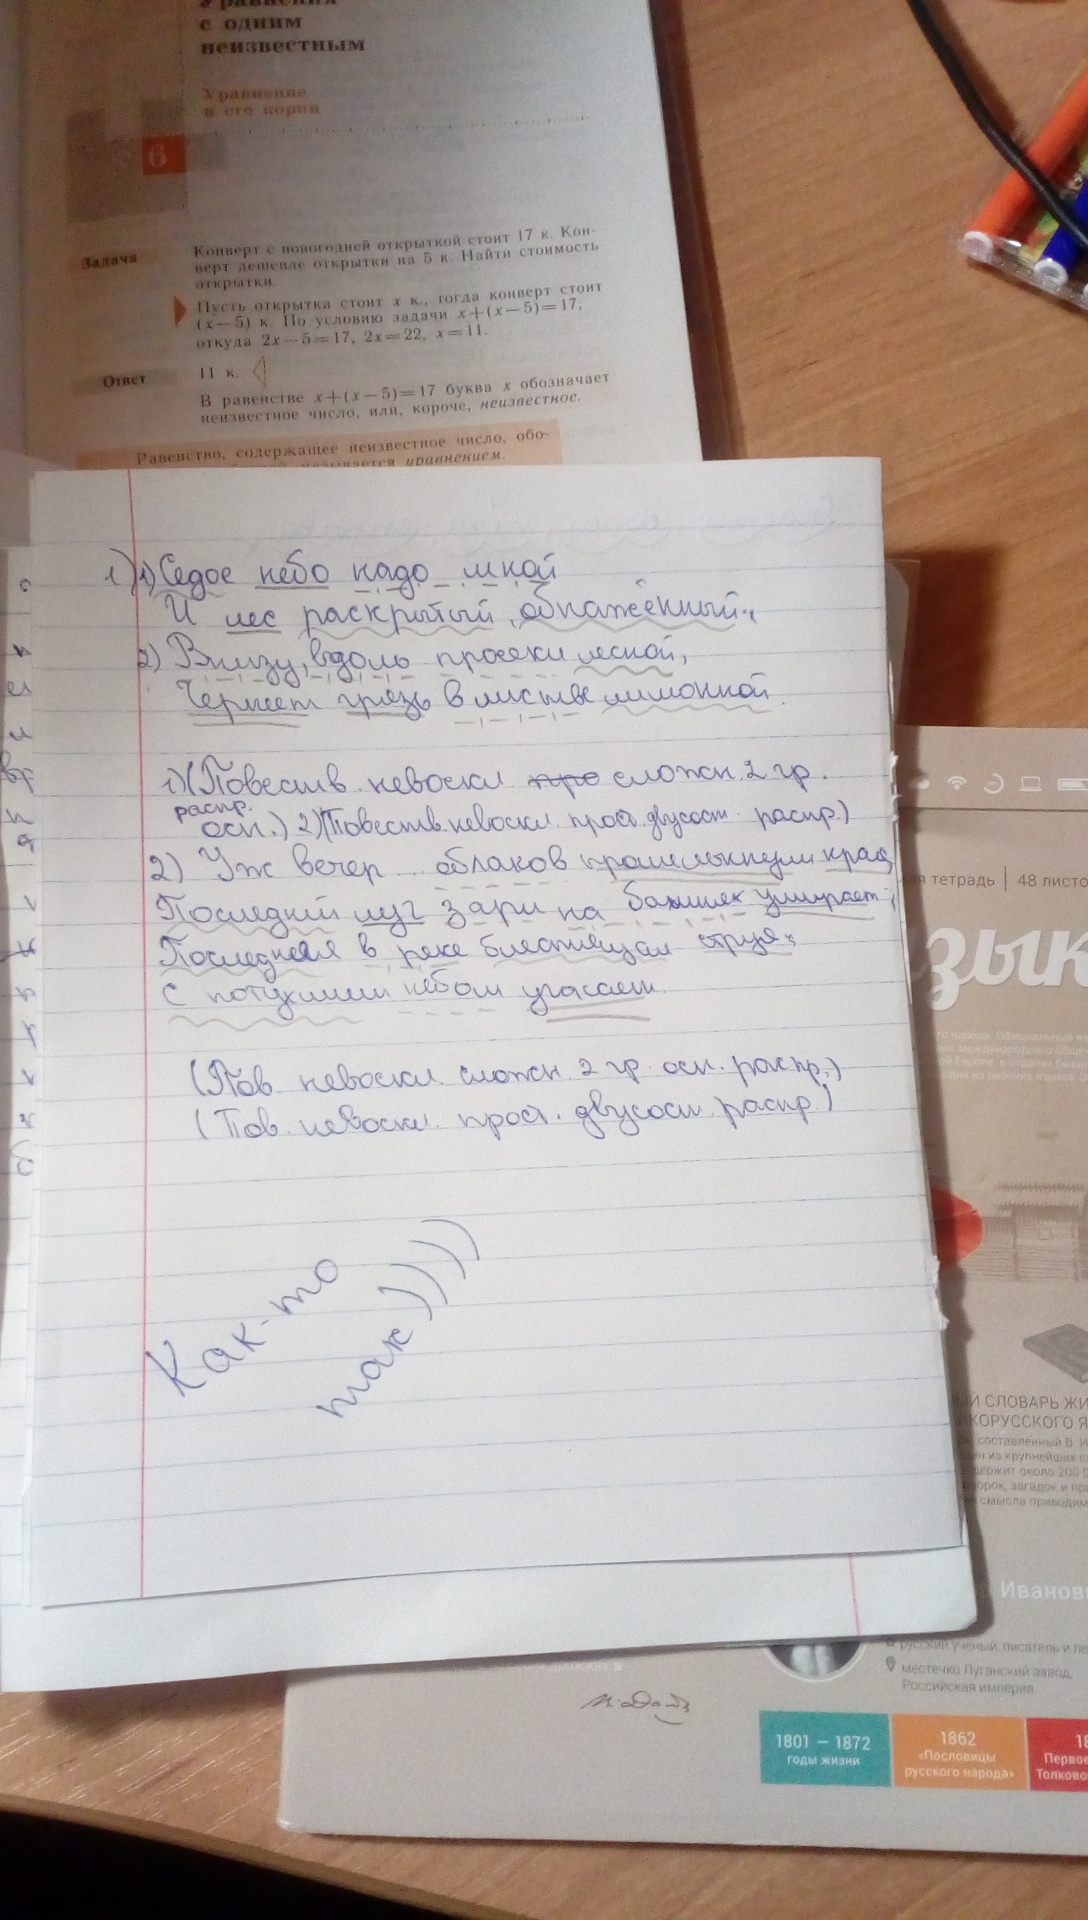 Уравнения
с одним
неизвестным
Уравнение
и его корни
6
Задача
Конверт с новогодней открыткой стоит 17 к. Кон-
верт дешевле открытки на 5 к. Найти стоимость
открытки.
Пусть открытка стоит x к., тогда конверт стоит
(x−5) к. По условию задачи x+(x−5)=17,
откуда 2x−5=17, 2x=22, x=11.
Ответ
11 к.
В равенстве x+(x−5)=17 буква x обозначает
неизвестное число, или, короче, неизвестное.
Равенство, содержащее неизвестное число, обо-
уравнением.
1) 1) Седое небо надо мной
И лес раскрытый, обнажённый.
2) Внизу, вдоль просеки лесной,
Чернеет грязь в листве лимонной.
1) (Повеств. невоскл. сложн. 2 гр.
распр.
осн.) 2) (Повеств. невоскл. прост. двусост. распр.)
2) Уж вечер... облаков края,
Последний луч зари на башнях умирает;
Последняя в реке блестящая струя
С потухшим небом угасает.
(Пов. невоскл. сложн. 2 гр. осн. распр.)
(Пов. невоскл. прост. двусосн. распр.)
Как-то
так))))
тетрадь | 48 листо
язык
СЛОВАРЬ ЖИ
ИКОРУССКОГО Я
составленный В. И
из крупнейших с
держит около 200 0
ворок, загадок и пр
смысла приводим
Иванови
русский ученый, писатель и ле
местечко Луганский завод,
Российская империя
1801 – 1872
годы жизни
1862
«Пословицы
русского народа»
18
Первое
Толково